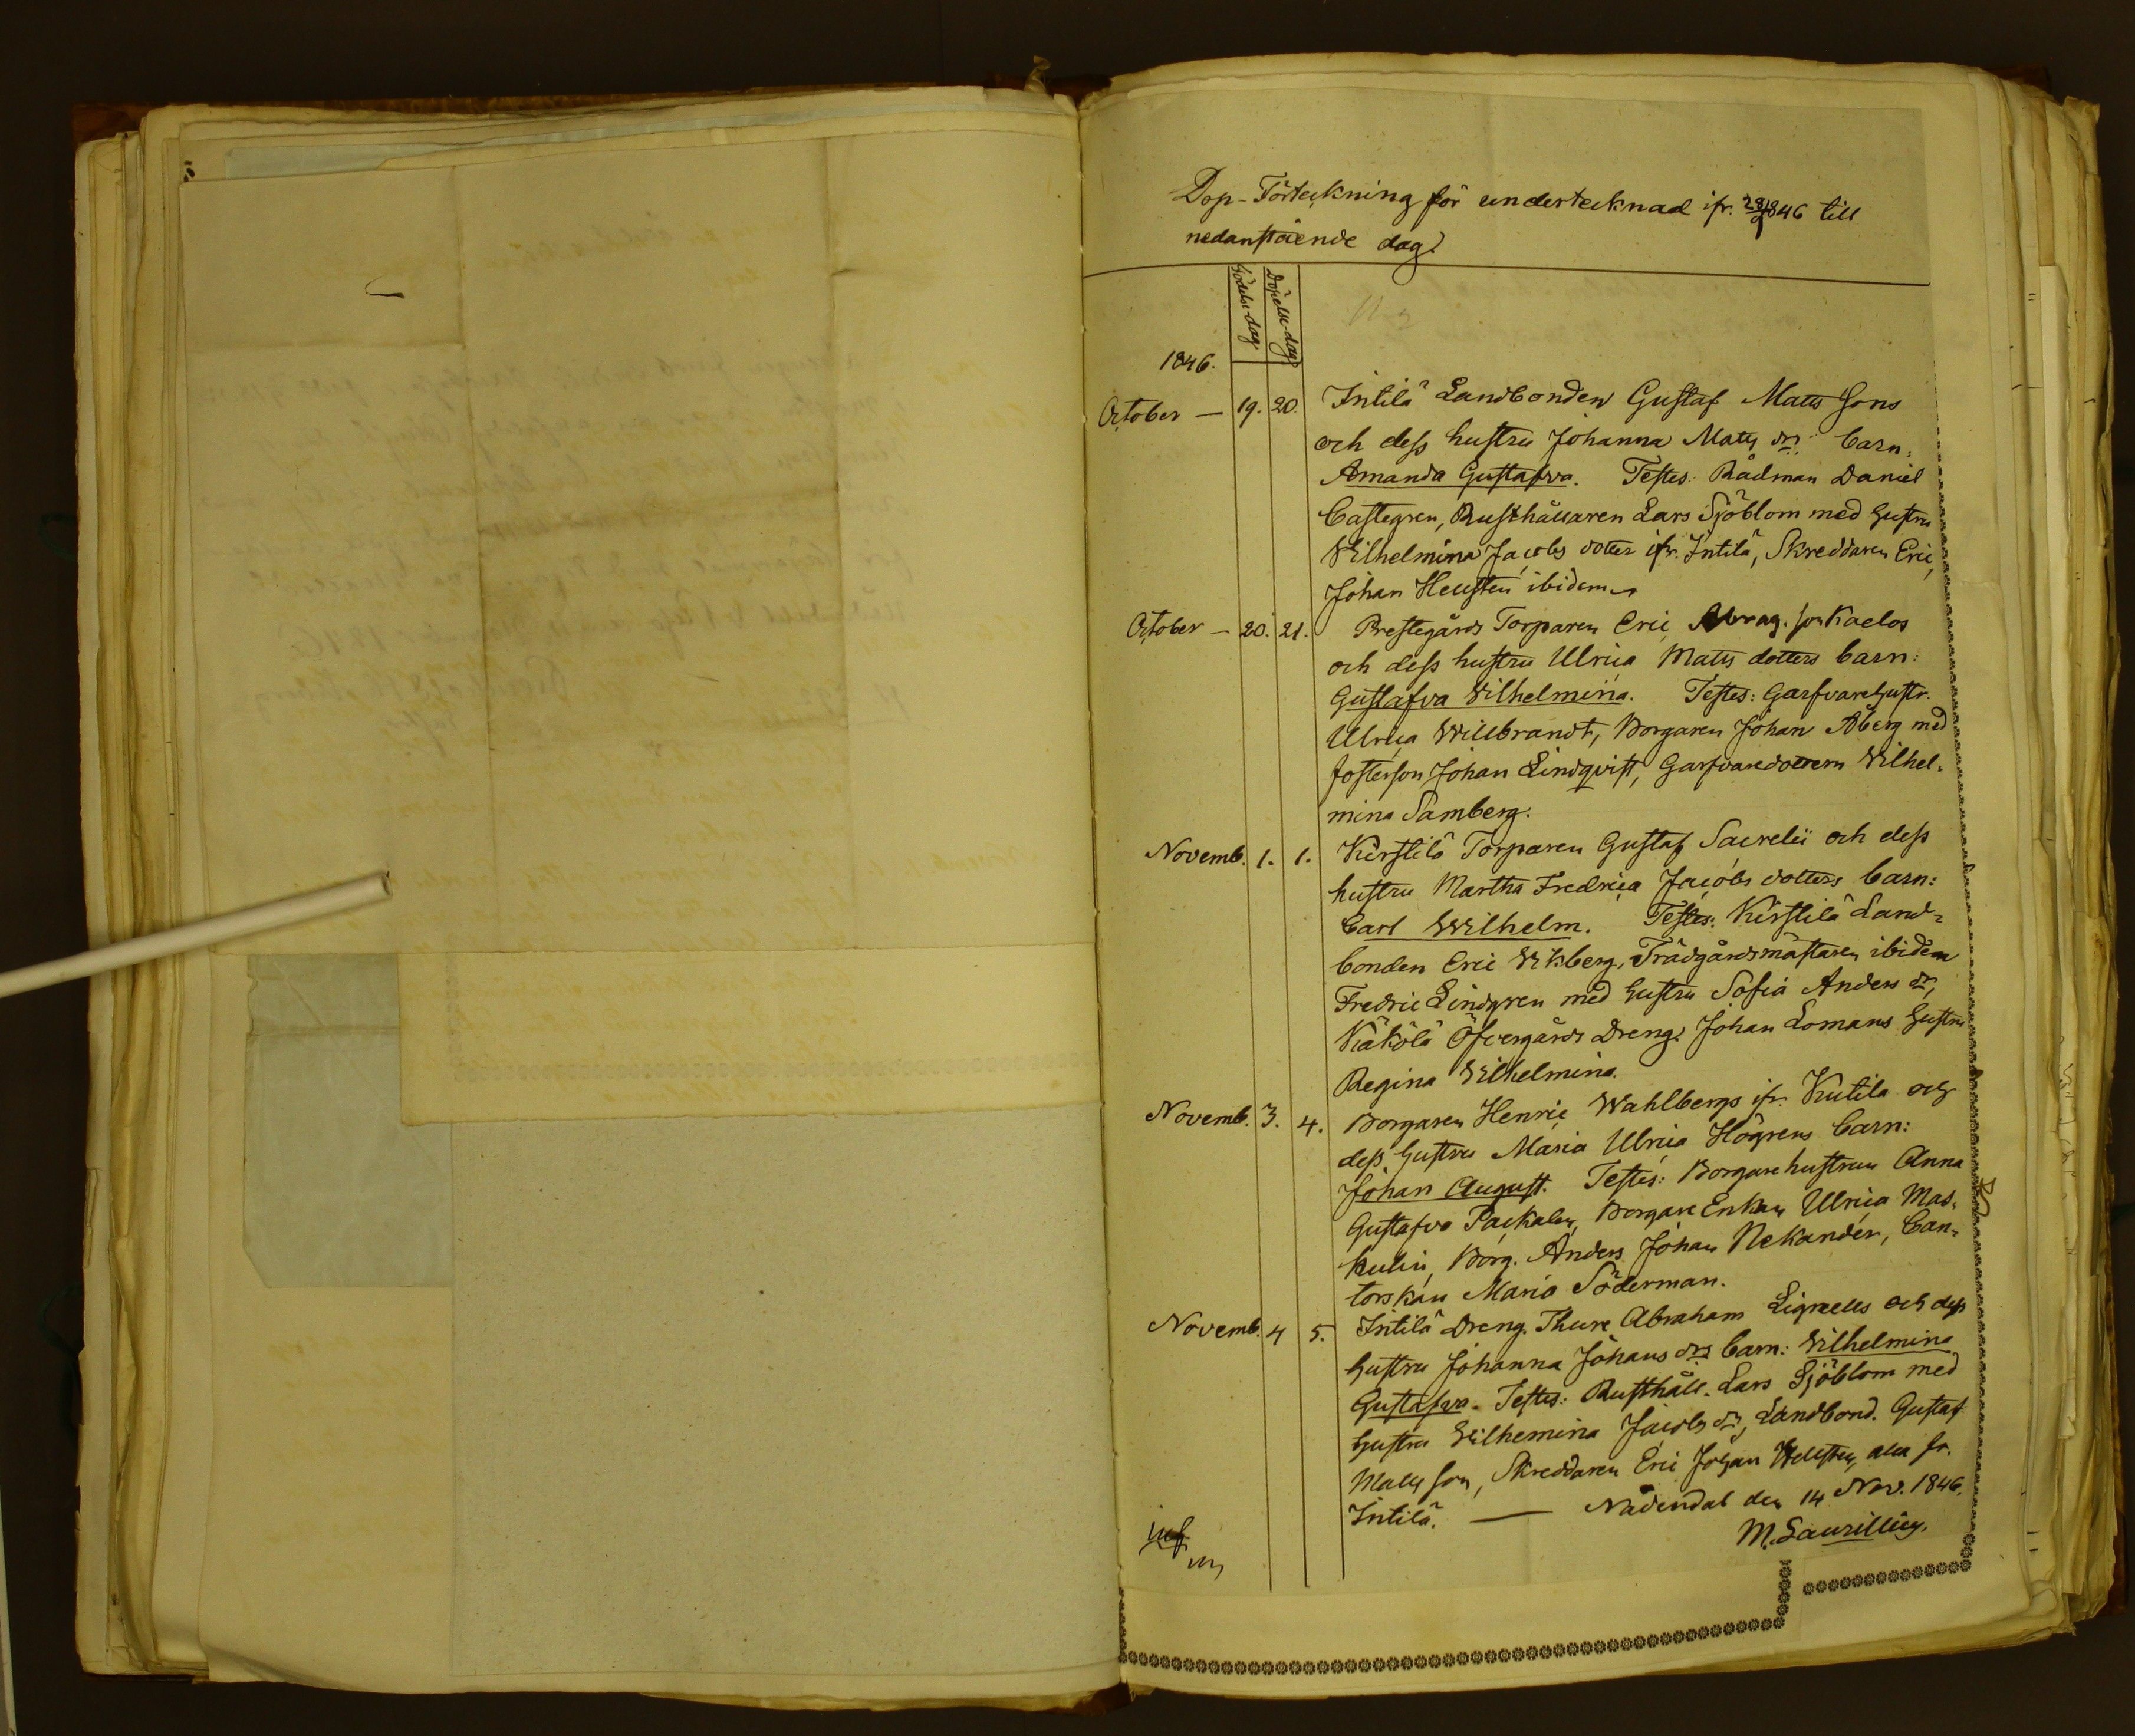 Dop-Förteckning för undertecknad ifr. 28/9 1846 till
nedanstående dag.
Födelse-dag
Döpelse-dag
1846.
October — 19. 20. Intilä Landbonden Gustaf Matts Sons
och dess hustru Johanna Matts drs. barn:
Amanda Gustafva. Testes: Rådman Daniel
Castegren, Rusthållaren Lars Sjöblom med hustru
Wilhelmina Jacobs dotter ifr. Intilä, Skreddaren Eric
Johan Hellsten ibidem
October — 20. 21. Prestegårds Torparen Eric Abrag. son Kaelos
och dess hustru Ulrica Matts dotters barn:
Gustafva Wilhelmina. Testes: Garfvarehustr.
Ulrica Willbrandt, Borgaren Johan Åberg med
fosterson Johan Lindqvist, Garfvaredottern Wilhel-
mina Samberg.
Novemb. 1. 1. Kirstilä Torparen Gustaf Saurelii och dess
hustru Martha Fredrica Jacobs dotters barn:
Carl Wilhelm. Testes: Kirstilä Land-
bonden Eric Wikberg, Trädgårdsmästaren ibidem
Fredric Lindgren med hustru Sofia Anders dr,
Käkölä Öfvergårds Dreng. Johan Lomans hustru
Regina Wilhelmina.
Novemb. 3. 4. Borgaren Henric Wahlbergs ifr. Kutila och
dess hustru Maria Ulrica Högrens barn:
Johan August. Testes: Borgarehustrun Anna
Gustafva Packalen, Borgare Enkan Ulrica Mas-
kulin, Borg. Anders Johan Nekander, Can-
torskan Maria Söderman.
Novemb. 4 5. Intilä Dreng. Thure Abraham Lignells och dess
hustru Johanna Johans drs barn: Wilhelmina
Gustafva. Testes: Rusthåll. Lars Sjöblom med
hustru Wilhemina Jacobs dr, Landbond. Gustaf
Matts son, Skreddaren Eric Johan Hellsten, alla fr.
Intilä. — Nådendal den 14 Nov. 1846.
M. Laurillius.